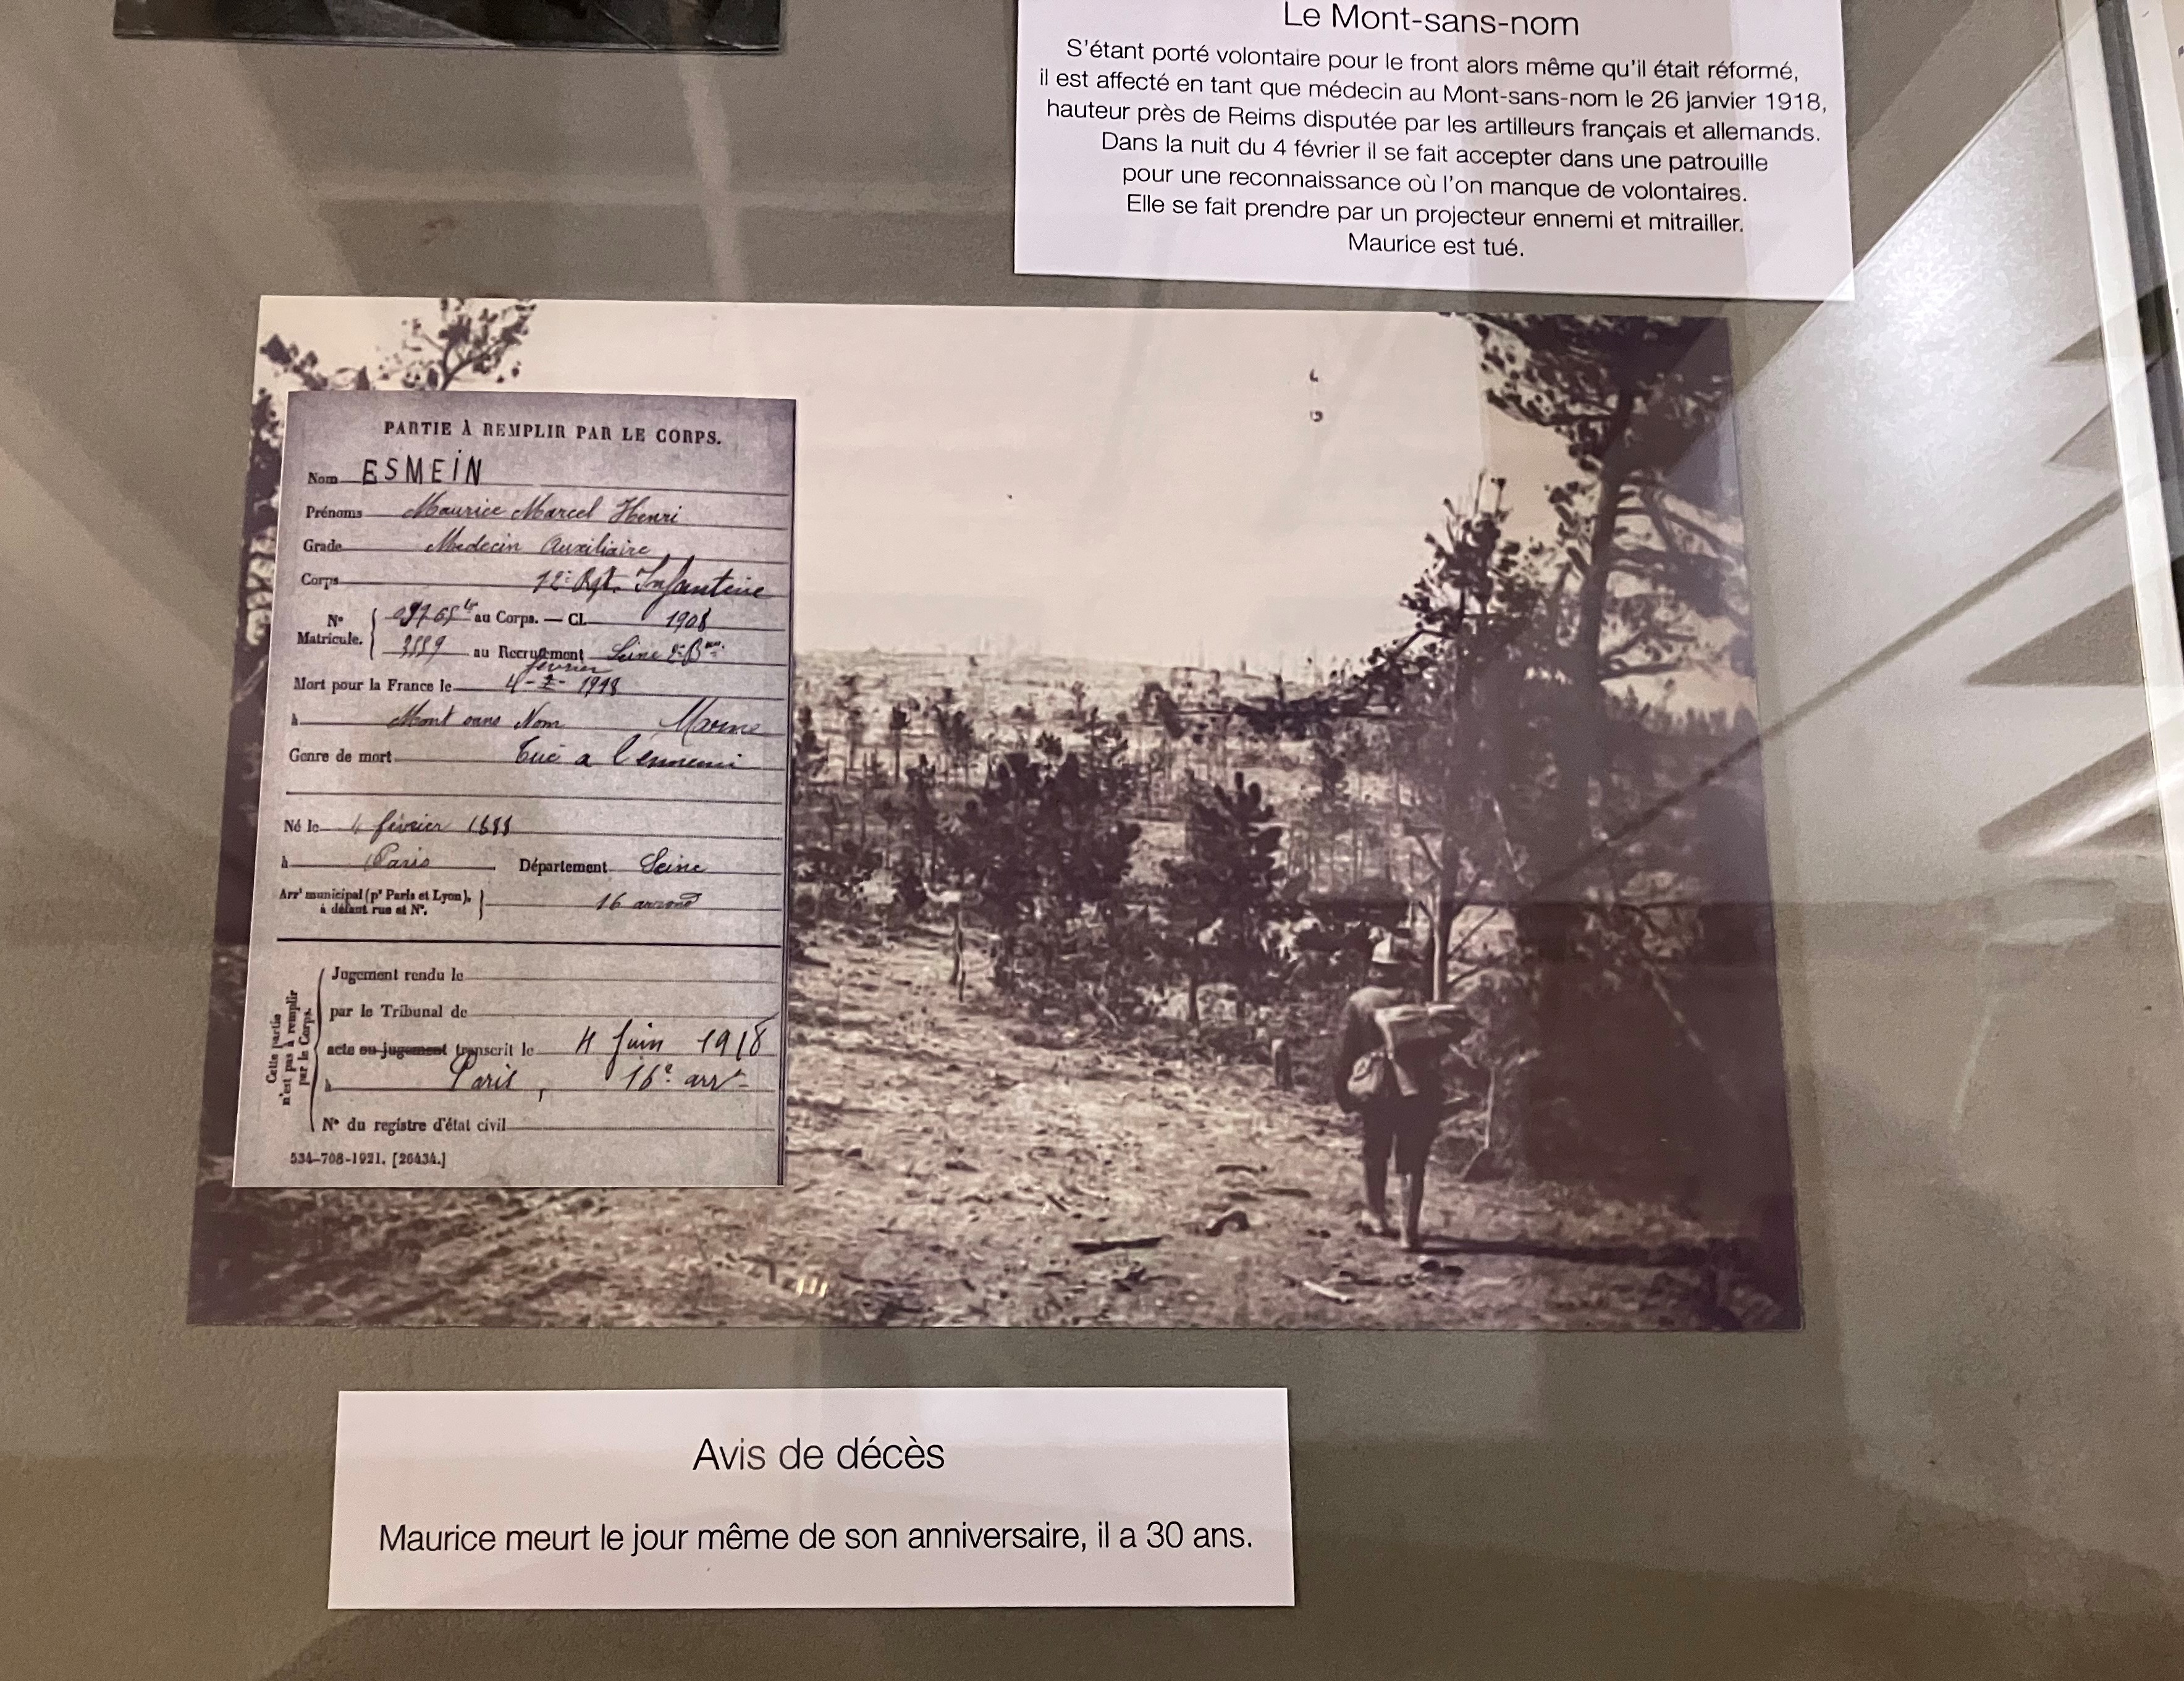 Le Mont-sans-nom
S'étant porté volontaire pour le front alors même qu'il était réformé,
il est affecté en tant que médecin au Mont-sans-nom le 26 janvier 1918,
hauteur près de Reims disputée par les artilleurs français et allemands.
Dans la nuit du 4 février il se fait accepter dans une patrouille
pour une reconnaissance où l'on manque de volontaires.
Elle se fait prendre par un projecteur ennemi et mitrailler.
Maurice est tué.
PARTIE À REMPLIR PAR LE CORPS.
Nom ESMEIN
Prénoms Maurice Marcel Henri
Grade Medecin Auxiliaire
Corps Infanterie
N° Matricule. au Corps. — Cl. 1908
au Recrutement Seine
février
Mort pour la France le 4 - 2 - 1918
à Mont sans Nom Marne
Genre de mort Tué a l'ennemi
Né le 4 février 1888
à Paris Département Seine
Arrt municipal (pr Paris et Lyon), à défaut rue et N°. 16 arrond
Cette partie n'est pas à remplir par le Corps.
Jugement rendu le
par le Tribunal de
acte ou jugement transcrit le 4 Juin 1918
à Paris, 16e arrt
N° du registre d'état civil
534-708-1921. [26434.]
Avis de décès
Maurice meurt le jour même de son anniversaire, il a 30 ans.